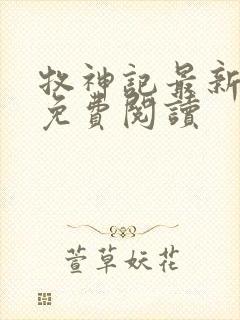 牧神記最新
免費閱讀
萱草妖花